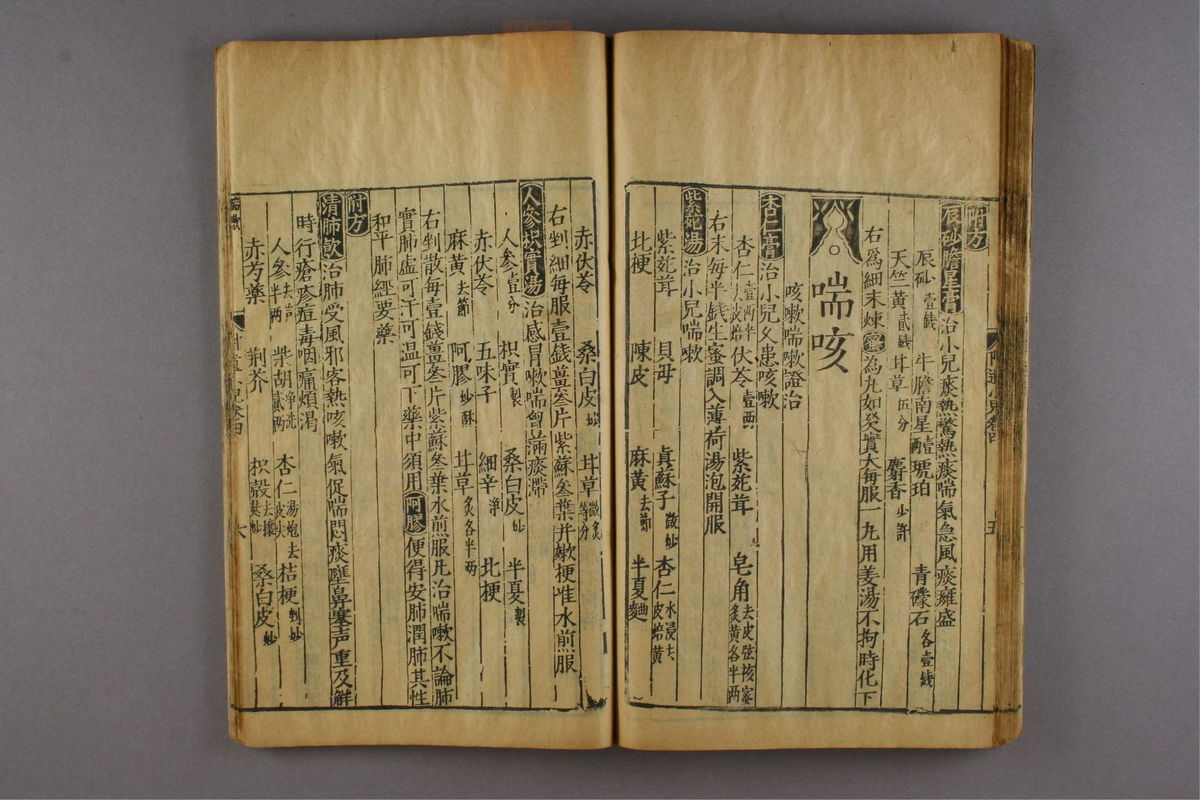 附方
辰砂膽星膏治小兒痰熱驚熱痰喘氣急風痰癰盛
辰砂壹錢 牛膽南星壹兩 琥珀 青礞石各壹錢
天竺黃貳錢 甘草五分 麝香少許
右為細末煉蜜為丸如芡實大每服一丸用姜湯不拘時化下
喘咳
咳嗽喘嗽證治
杏仁膏治小兒久患咳嗽
杏仁壹兩半 皮焙 茯苓壹兩 紫菀茸 皂角去皮弦核蜜炙黃各半兩
右末每半錢生蜜調入薄荷湯泡開服
紫菀湯治小兒喘嗽
紫菀茸 貝母 真蘇子微炒 杏仁水浸去皮焙黃
北梗 陳皮 麻黃去節 半夏麯
赤茯苓 桑白皮炒 甘草微炙等分
右剉細每服壹錢薑叁片紫蘇叁葉并嫰梗唯水煎服
人參枳實湯治感冒嗽喘胷滿痰滯
人參壹分 枳實製 桑白皮炒 半夏製
赤茯苓 五味子 細辛淨 北梗
麻黃去節 阿膠炒酥 甘草炙各半兩
右剉散每壹錢薑叁片紫蘇叁葉水煎服凡治喘嗽不論肺
實肺虛可汗可溫可下藥中須用阿膠便得安肺潤肺其性
和平肺經要藥
附方
清肺飲治肺受風邪客熱咳嗽氣促喘悶痰壅鼻塞声重及解
時行瘡疹痘毒咽痛煩渴
人參去蘆半兩 柴胡淨洗貳兩 杏仁湯炮去皮尖 桔梗剉炒
赤芍藥 荊芥 枳殼去穰麩炒 桑白皮炒